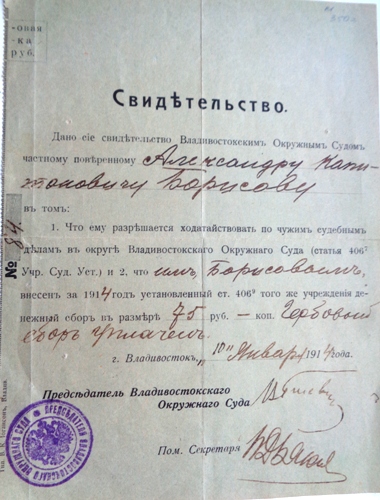 -овая
-ка
руб.
Свидѣтельство.
Дано сіе свидѣтельство Владивостокскимъ Окружнымъ Судомъ
частному повѣренному Александру Капи-
тоновичу Борисову
въ томъ:
1. Что ему разрѣшается ходатайствовать по чужимъ судебнымъ
дѣламъ въ округѣ Владивостокскаго Окружнаго Суда (статья 406⁷
Учр. Суд. Уст.) и 2, что имъ, Борисовымъ,
внесен за 1914 годъ установленный ст. 406⁹ того же учрежденія де-
нежный сборъ въ размѣрѣ 75 руб. — коп. Гербовый
сборъ уплаченъ.
г. Владивостокъ, „10" Января 1914 года.
Предсѣдатель Владивостокскаго
Окружнаго Суда
Пом. Секретаря
№ 84
ПРЕДСѢДАТЕЛЬ ВЛАДИВОСТОКСКАГО ОКРУЖНАГО СУДА